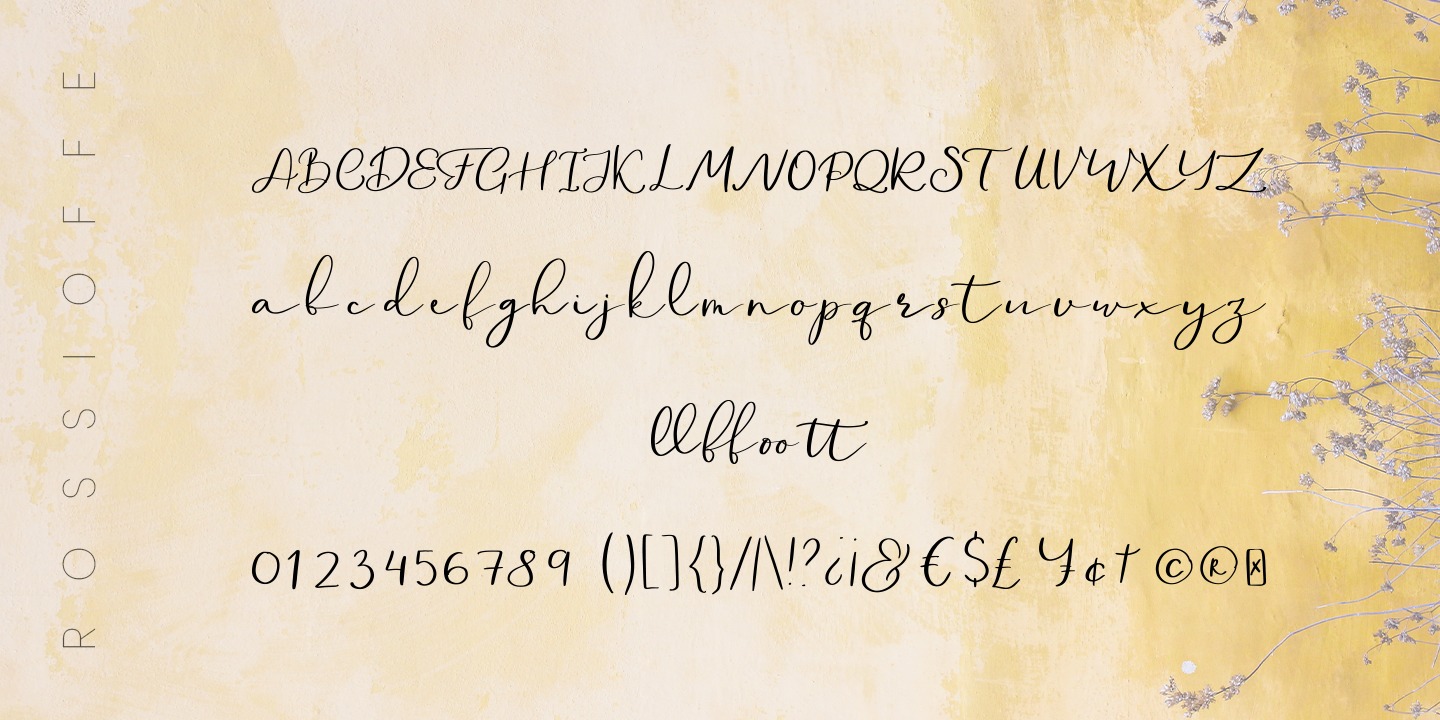 ROSSIOFFE
ABCDEFGHIJKLMNOPQRSTUVWXYZ
abcdefghijklmnopqrstuvwxyz
llffoott
0123456789 ()[]{}/|\!?¿¡&€$£ ¥¢† ©®